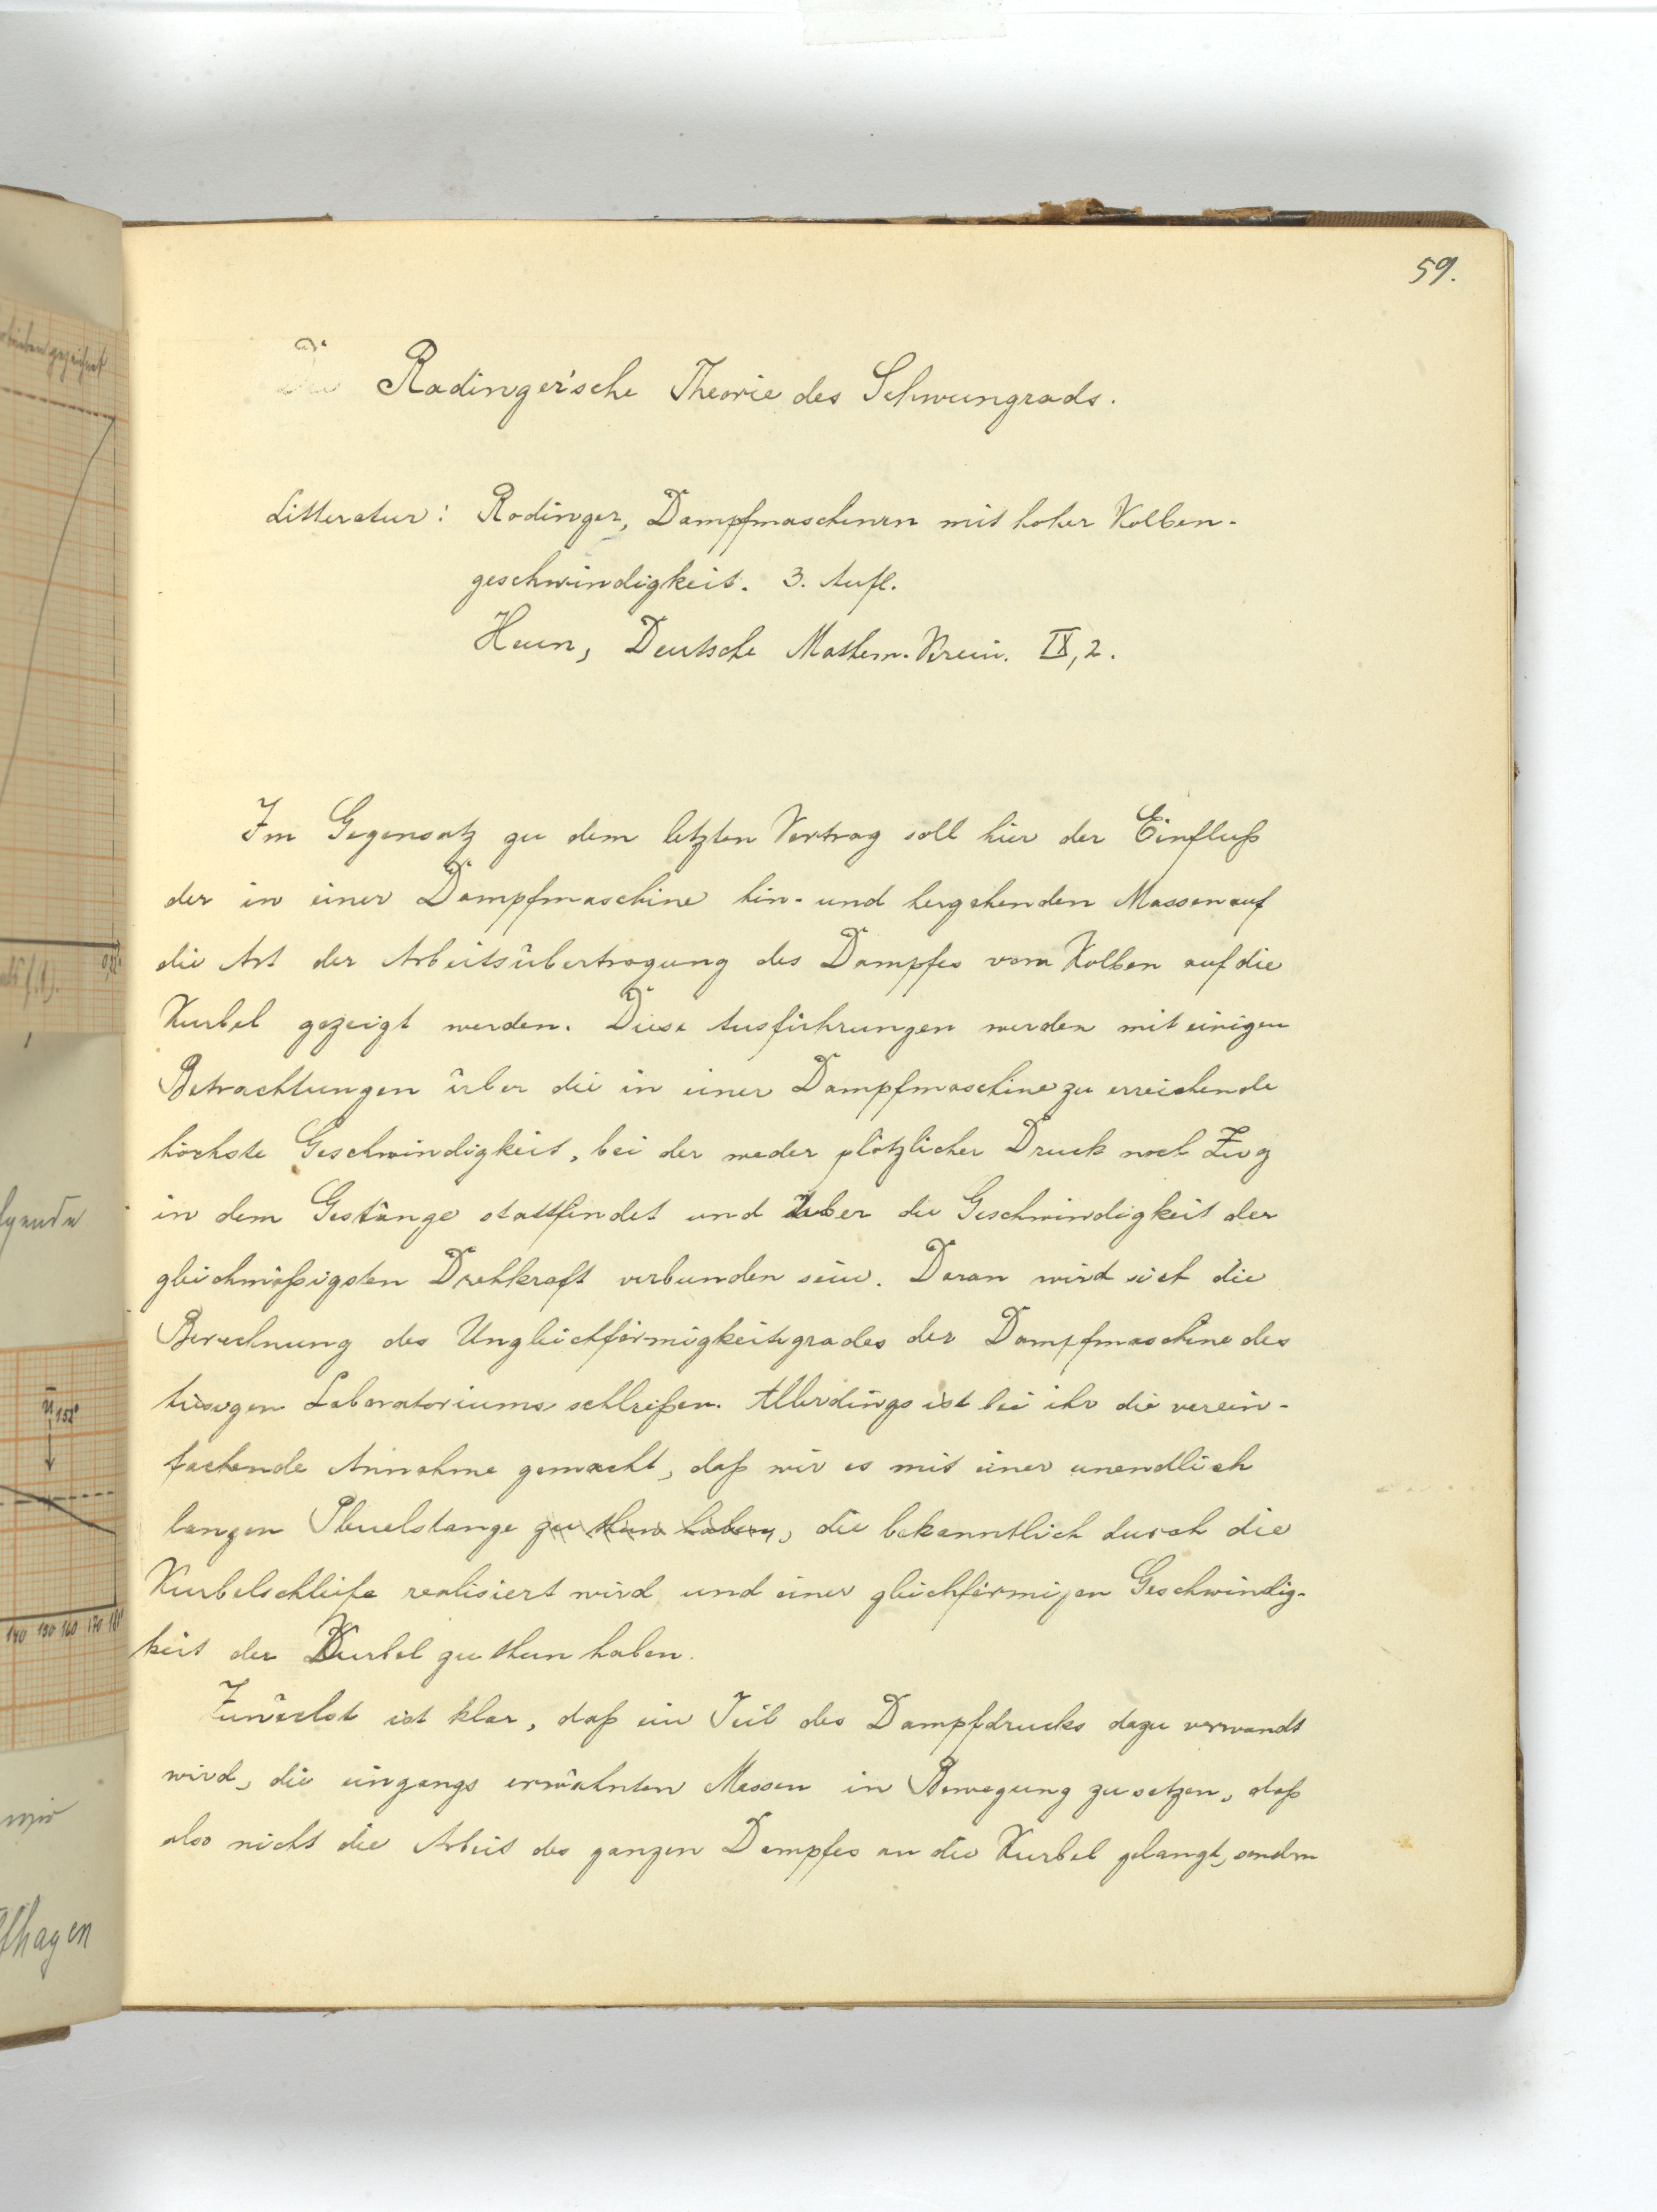 59.
Die Radinger'sche Theorie des Schwungrads.
Litteratur: Radinger, Dampfmaschinen mit hoher Kolben-
geschwindigkeit. 3. Aufl.
Heun, Deutsche Mathem. Verein. IX, 2.
Im Gegensatz zu dem letzten Vortrag soll hier der Einfluß
der in einer Dampfmaschine hin- und hergehenden Massen auf
die Art der Arbeitsübertragung des Dampfes vom Kolben auf die
Kurbel gezeigt werden. Diese Ausführungen werden mit einigen
Betrachtungen über die in einer Dampfmaschine zu erreichende
höchste Geschwindigkeit, bei der weder plötzlicher Druck noch Zug
in dem Gestänge stattfindet und über die Geschwindigkeit der
gleichmäßigsten Drehkraft verbunden sein. Daran wird sich die
Berechnung des Ungleichförmigkeitsgrades der Dampfmaschine des
hiesigen Laboratoriums schließen. Allerdings ist bei ihr die verein-
fachende Annahme gemacht, daß wir es mit einer unendlich
langen Pleuelstange zu thun haben, die bekanntlich durch die
Kurbelschleife realisiert wird und einer gleichförmigen Geschwindig-
keit der Kurbel zu thun haben.
Zunächst ist klar, daß ein Teil des Dampfdrucks dazu verwandt
wird, die eingangs erwähnten Massen in Bewegung zu setzen, daß
also nicht die Arbeit des ganzen Dampfes an die Kurbel gelangt, sondern
gezeichnet
152°
140 150 160 170 180
wir